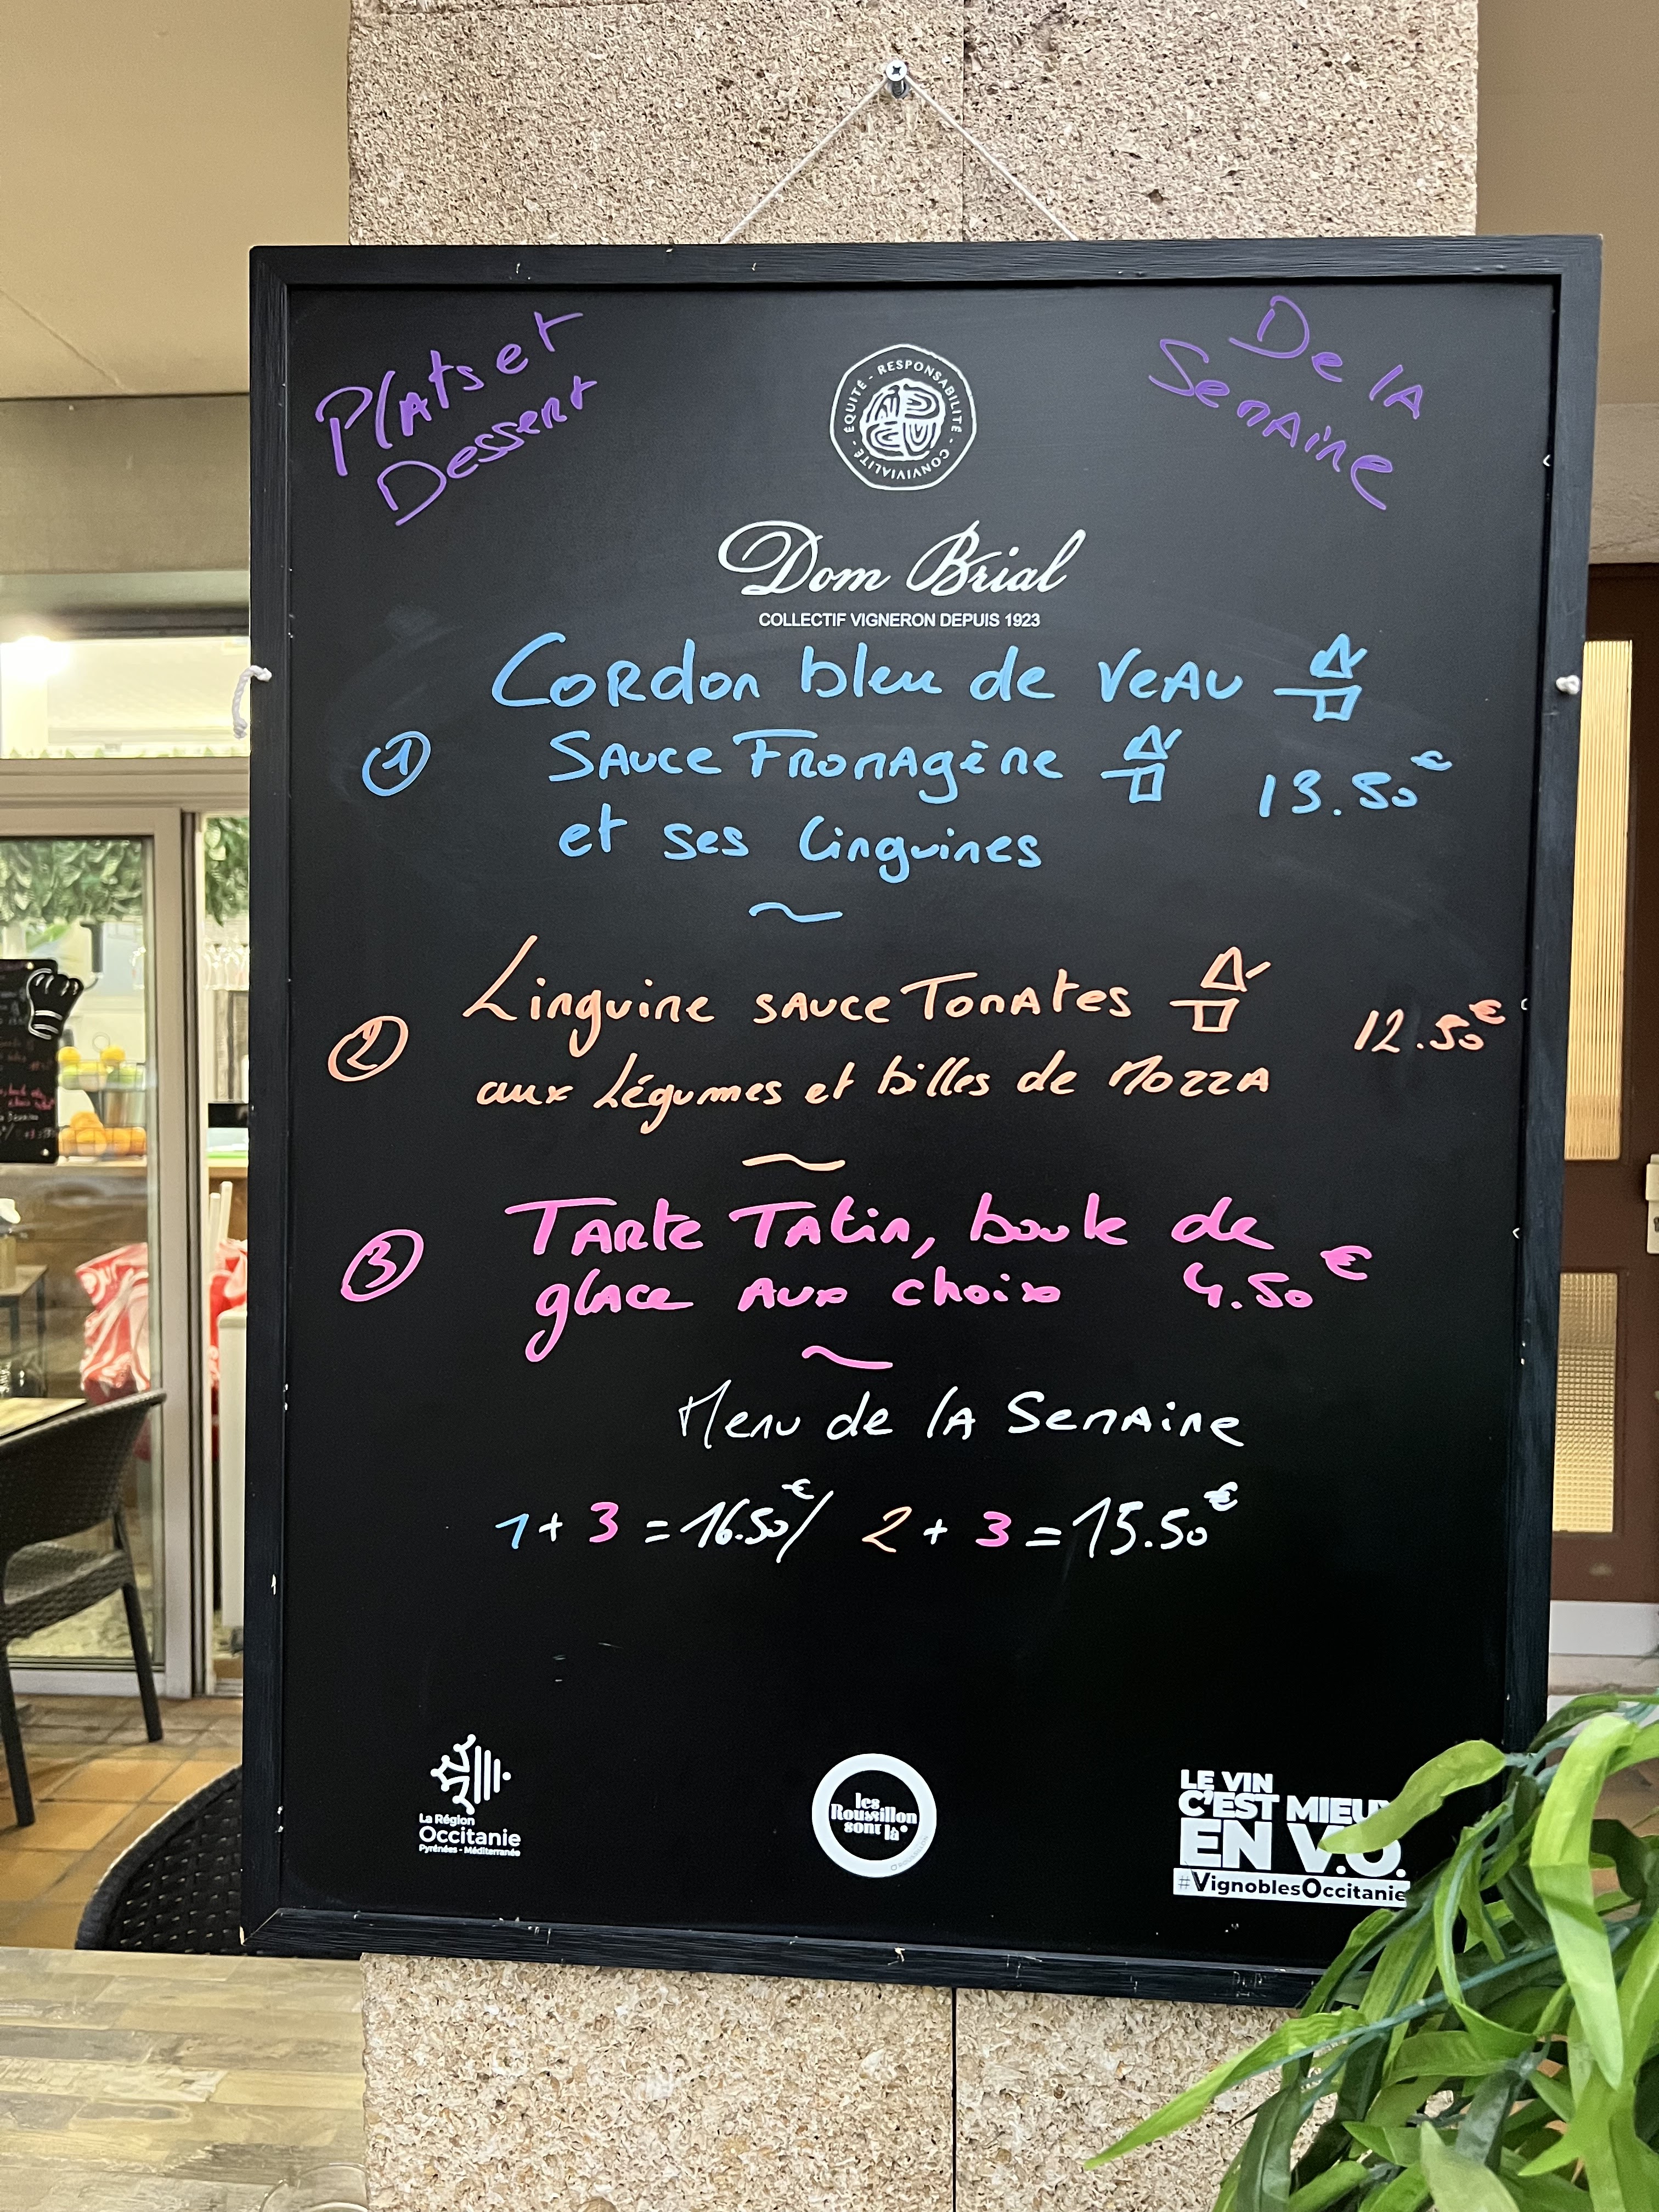 Plats et
Dessert
De la
Semaine
ÉQUITÉ - RESPONSABILITÉ - CONVIVIALITÉ -
Dom Brial
COLLECTIF VIGNERON DEPUIS 1923
Cordon bleu de veau
① Sauce Fromagère 13.50€
et ses linguines
~
Linguine sauce Tomates
② 12.50€
aux légumes et billes de Mozza
~
③ Tarte Tatin, boule de
glace aux choix 4.50€
~
Menu de la Semaine
1 + 3 = 16.50€/ 2 + 3 = 15.50€
La Région
Occitanie
Pyrénées - Méditerranée
les
Roussillon
sont là
LE VIN
C'EST MIEUX
EN V.O.
#VignoblesOccitanie